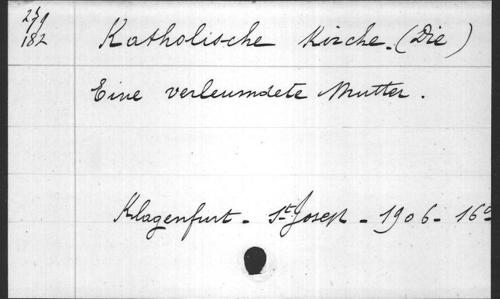 279
182
Katholische Kirche. (Die)
Eine verleumdete Mutter.
Klagenfurt - St Joseph - 1906 - 16º